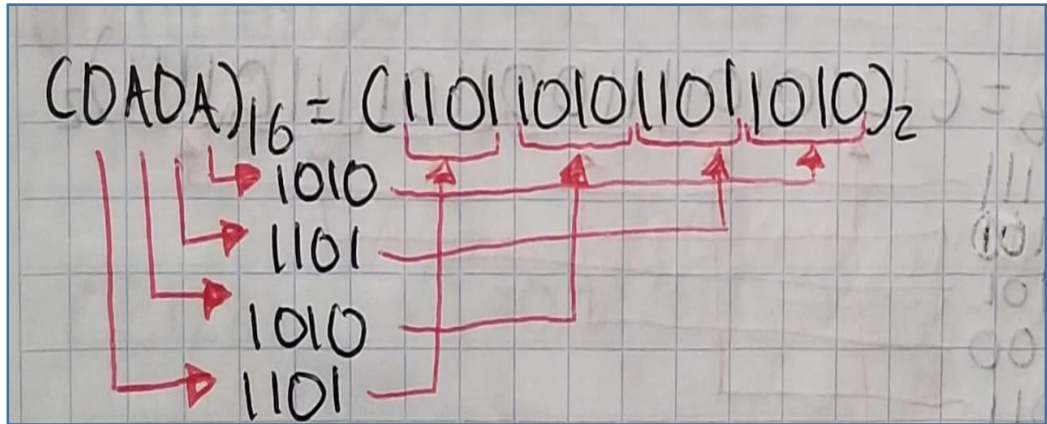 (DADA)16 = (1101101011011010)2
1010
1101
1010
1101